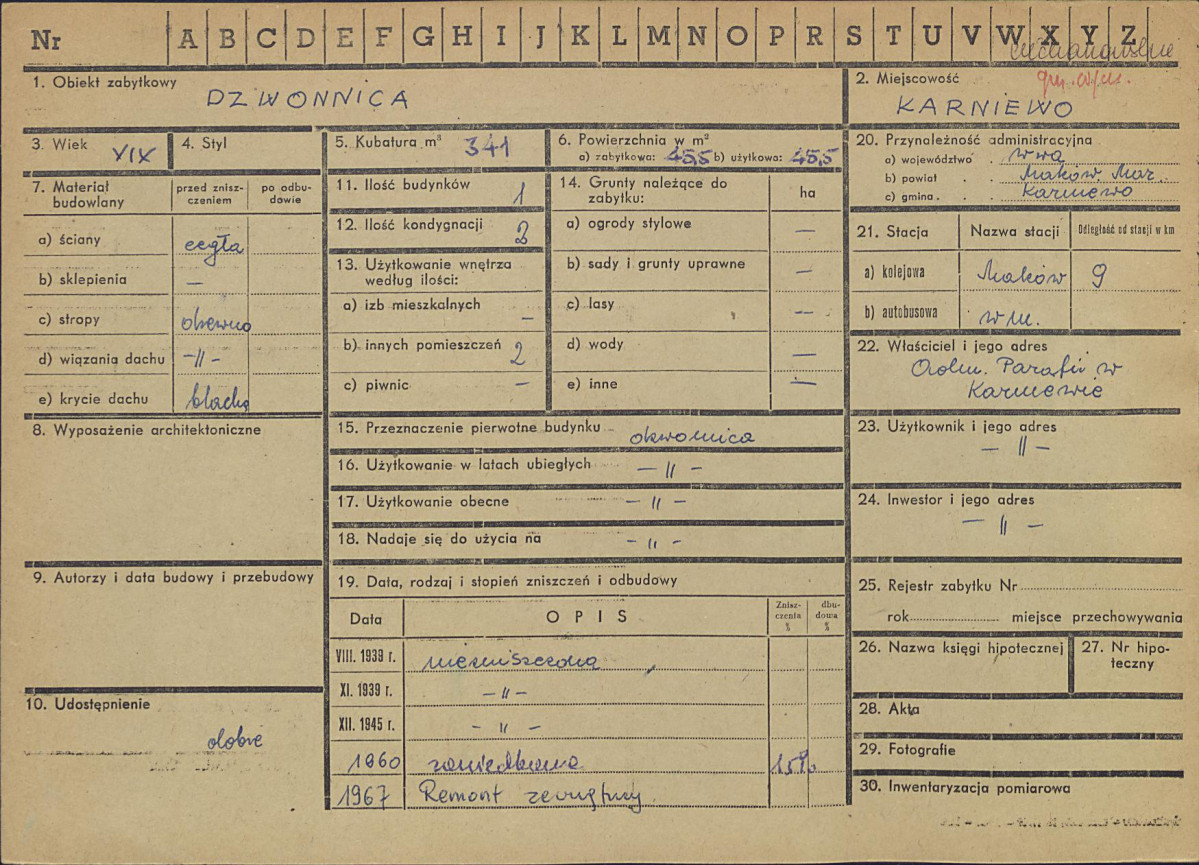 Nr A B C D E F G H I J K L M N O P R S T U V W X Y Z
ciechanowskie
1. Obiekt zabytkowy
DZWONNICA
2. Miejscowość
gm. w/m.
KARNIEWO
3. Wiek XIX
4. Styl
5. Kubatura m³ 341
6. Powierzchnia w m²
a) zabytkowa: 45,5 b) użytkowa: 45,5
7. Materiał budowlany
przed znisz-
czeniem
po odbu-
dowie
a) ściany cegła
b) sklepienia —
c) stropy drewno
d) wiązania dachu -〃-
e) krycie dachu blacha
8. Wyposażenie architektoniczne
9. Autorzy i data budowy i przebudowy
10. Udostępnienie
dobre
11. Ilość budynków 1
12. Ilość kondygnacji 2
13. Użytkowanie wnętrza
według ilości:
a) izb mieszkalnych –
b) innych pomieszczeń 2
c) piwnic –
14. Grunty należące do
zabytku:
ha
a) ogrody stylowe —
b) sady i grunty uprawne —
c) lasy —
d) wody —
e) inne —
15. Przeznaczenie pierwotne budynku dzwonnica
16. Użytkowanie w latach ubiegłych — 〃 –
17. Użytkowanie obecne — 〃 –
18. Nadaje się do użycia na – 〃 –
19. Data, rodzaj i stopień zniszczeń i odbudowy
Data
OPIS
Znisz-
czenia
%
dbu-
dowa
%
VIII. 1939 r. niezniszczona
XI. 1939 r. – 〃 –
XII. 1945 r. – 〃 –
1960 zaniedbana 15%
1967 Remont zewnętrzny
20. Przynależność administracyjna
a) województwo w-wa
b) powiat Maków Maz.
c) gmina Karniewo
21. Stacja
Nazwa stacji
Odległość od stacji w km
a) kolejowa Maków 9
b) autobusowa w m.
22. Właściciel i jego adres
Adm. Parafii w
Karniewie
23. Użytkownik i jego adres
— 〃 –
24. Inwestor i jego adres
— 〃 –
25. Rejestr zabytku Nr
rok miejsce przechowywania
26. Nazwa księgi hipotecznej
27. Nr hipo-
teczny
28. Akta
29. Fotografie
30. Inwentaryzacja pomiarowa